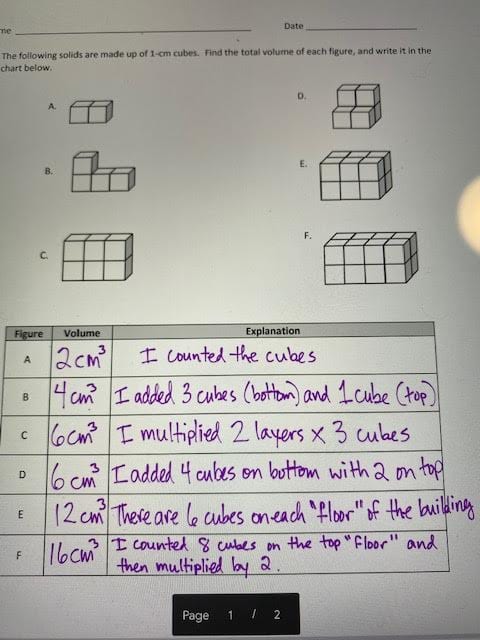 me
Date
The following solids are made up of 1-cm cubes. Find the total volume of each figure, and write it in the
chart below.
A.
D.
B.
E.
C.
F.
Figure Volume Explanation
A 2cm³ I counted the cubes
B 4cm³ I added 3 cubes (bottom) and 1 cube (top)
C 6cm³ I multiplied 2 layers x 3 cubes
D 6cm³ I added 4 cubes on bottom with 2 on top
E 12cm³ There are 6 cubes on each "floor" of the building
F 16cm³ I counted 8 cubes on the top "floor" and
then multiplied by 2.
Page 1 / 2